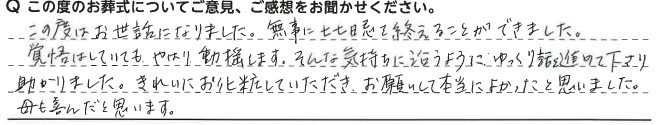 Q この度のお葬式についてご意見、ご感想をお聞かせください。
この度はお世話になりました。無事に七七忌を終えることができました。
覚悟はしていても やはり動揺します。そんな気持ちに沿うように ゆっくり話を進めて下さり
助かりました。きれいにお化粧していただき、お願いして本当によかったと思いました。
母も喜んだと思います。